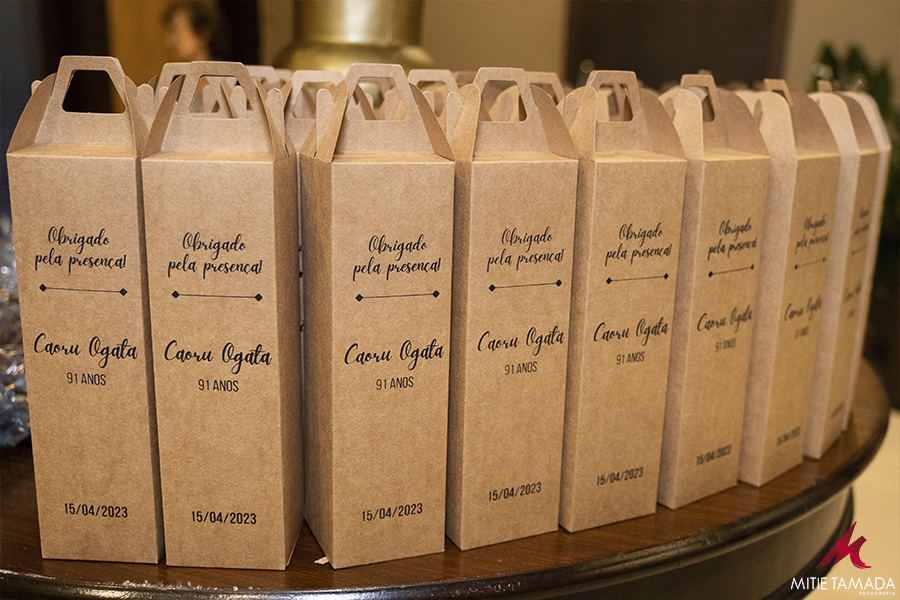 Obrigado
pela presença!
Caoru Ogata
91 ANOS
15/04/2023
Obrigado
pela presença!
Caoru Ogata
91 ANOS
15/04/2023
Obrigado
pela presença!
Caoru Ogata
91 ANOS
15/04/2023
Obrigado
pela presença!
Caoru Ogata
91 ANOS
15/04/2023
Obrigado
pela presença!
Caoru Ogata
91 ANOS
15/04/2023
Obrigado
pela presença!
Caoru Ogata
91 ANOS
15/04/2023
Obrigado
pela presença!
Caoru Ogata
91 ANOS
15/04/2023
MITIE TAMADA
FOTOGRAFIA